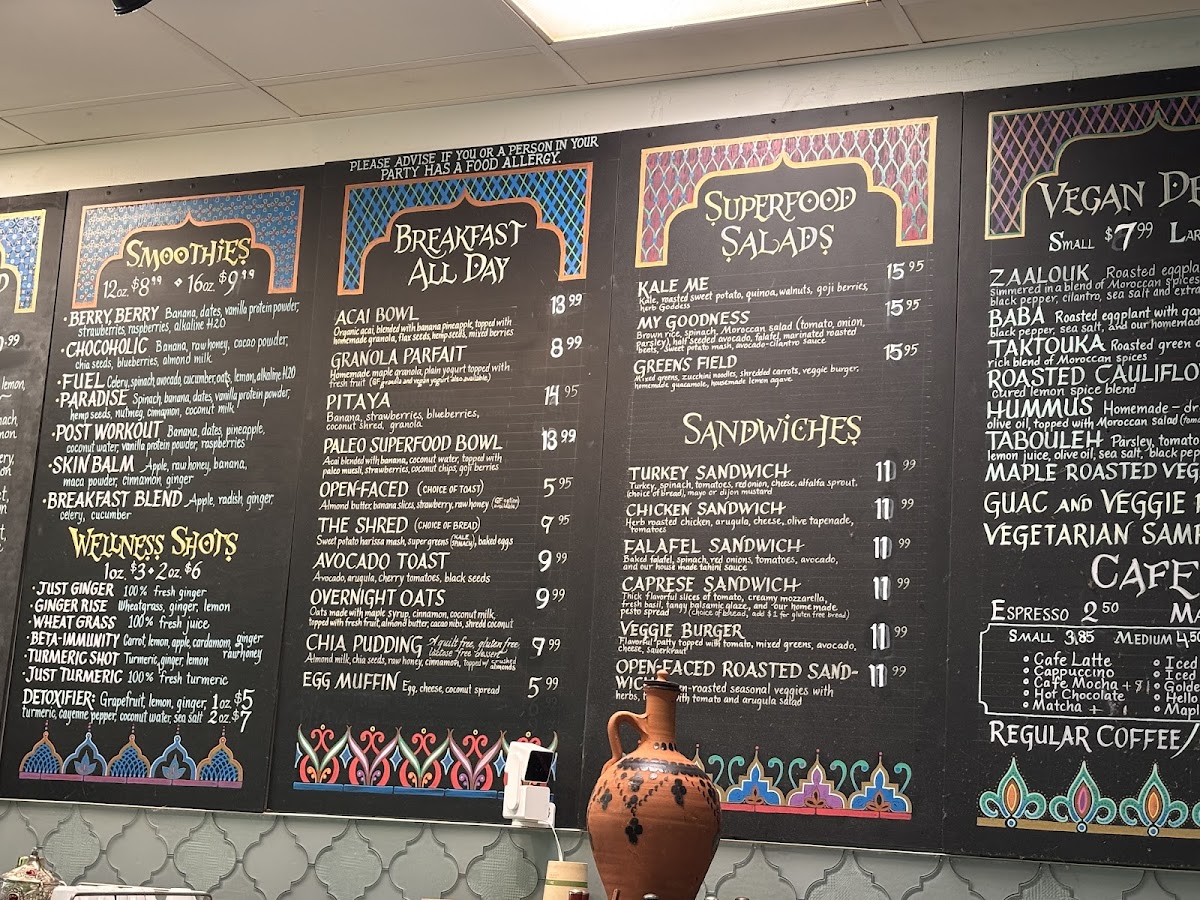 SMOOTHIES
12oz. $8.99 16oz. $9.99
• BERRY, BERRY Banana, dates, vanilla protein powder,
strawberries, raspberries, alkaline H2O
• CHOCOHOLIC Banana, raw honey, cacao powder,
chia seeds, blueberries, almond milk
• FUEL Celery, spinach, avocado, cucumber, oats, lemon, alkaline H2O
• PARADISE Spinach, banana, dates, vanilla protein powder,
hemp seeds, nutmeg, cinnamon, coconut milk
• POST WORKOUT Banana, dates, pineapple,
coconut water, vanilla protein powder, raspberries
• SKIN BALM Apple, raw honey, banana,
maca powder, cinnamon, ginger
• BREAKFAST BLEND Apple, radish, ginger
celery, cucumber
WELLNESS SHOTS
1oz. $3 • 2oz. $6
• JUST GINGER 100% fresh ginger
• GINGER RISE Wheatgrass, ginger, lemon
• WHEAT GRASS 100% fresh juice
• BETA-IMMUNITY Carrot, lemon, apple, cardamom, ginger
raw honey
• TURMERIC SHOT Turmeric, ginger, lemon
• JUST TURMERIC 100% fresh turmeric
DETOXIFIER: Grapefruit, lemon, ginger, 1oz $5
turmeric, cayenne pepper, coconut water, sea salt 2oz. $7
PLEASE ADVISE IF YOU OR A PERSON IN YOUR
PARTY HAS A FOOD ALLERGY.
BREAKFAST
ALL DAY
ACAI BOWL 13.99
Organic acai, blended with banana pineapple, topped with
homemade granola, flax seeds, hemp seeds, mixed berries
GRANOLA PARFAIT 8.99
Homemade maple granola, plain yogurt topped with
fresh fruit (GF granola and vegan yogurt also available)
PITAYA 14.95
Banana, strawberries, blueberries,
coconut shred, granola
PALEO SUPERFOOD BOWL 13.99
Acai blended with banana, coconut water, topped with
paleo muesli, strawberries, coconut chips, goji berries
OPEN-FACED (CHOICE OF TOAST) 5.95
Almond butter, banana slices, strawberry, raw honey (GF option available)
THE SHRED (CHOICE OF BREAD) 9.95
Sweet potato harissa mash, super greens (KALE, SPINACH), baked eggs
AVOCADO TOAST 9.99
Avocado, arugula, cherry tomatoes, black seeds
OVERNIGHT OATS 9.99
Oats made with maple syrup, cinnamon, coconut milk,
topped with fresh fruit, almond butter, cacao nibs, shred coconut
CHIA PUDDING A guilt free, gluten free, lactose free dessert 7.99
Almond milk, chia seeds, raw honey, cinnamon, topped w/ crushed almonds
EGG MUFFIN Egg, cheese, coconut spread 5.99
SUPERFOOD
SALADS
KALE ME 15.95
Kale, roasted sweet potato, quinoa, walnuts, goji berries,
herb Goddess
MY GOODNESS 15.95
Brown rice, spinach, Moroccan salad (tomato, onion,
parsley), half seeded avocado, falafel, marinated roasted
beets, sweet potato mash, avocado-cilantro sauce
GREENS FIELD 15.95
Mixed greens, zucchini noodles, shredded carrots, veggie burger,
homemade guacamole, housemade lemon agave
SANDWICHES
TURKEY SANDWICH 11.99
Turkey, spinach, tomatoes, red onion, cheese, alfalfa sprout,
(choice of bread), mayo or dijon mustard
CHICKEN SANDWICH 11.99
Herb roasted chicken, arugula, cheese, olive tapenade,
tomatoes
FALAFEL SANDWICH 11.99
Baked falafel, spinach, red onions, tomatoes, avocado,
and our house made tahini sauce
CAPRESE SANDWICH 11.99
Thick flavorful slices of tomato, creamy mozzarella,
fresh basil, tangy balsamic glaze, and our homemade
pesto spread (choice of bread, add $1 for gluten free bread)
VEGGIE BURGER 11.99
Flavorful patty topped with tomato, mixed greens, avocado,
cheese, sauerkraut
OPEN-FACED ROASTED SAND- 11.99
WICH -roasted seasonal veggies with
herbs, with tomato and arugula salad
VEGAN DE
SMALL $7.99 LAR
ZAALOUK Roasted eggpla
Simmered in a blend of Moroccan spices
black pepper, cilantro, sea salt and extra
BABA Roasted eggplant with gar
black pepper, sea salt, and our homemad
TAKTOUKA Roasted green
rich blend of Moroccan spices
ROASTED CAULIFLO
cured lemon spice blend
HUMMUS Homemade – dr
olive oil, topped with Moroccan salad (toma
TABOULEH Parsley, tomato
lemon juice, olive oil, sea salt, black pep
MAPLE ROASTED VEG
GUAC AND VEGGIE
VEGETARIAN SAM
CAFE
ESPRESSO 2.50 MA
SMALL 3.85 MEDIUM 4.50
• Cafe Latte • Iced
• Cappuccino • Iced
• Cafe Mocha + $1 • Gold
• Hot Chocolate • Hello
• Matcha + • Mapl
REGULAR COFFEE/